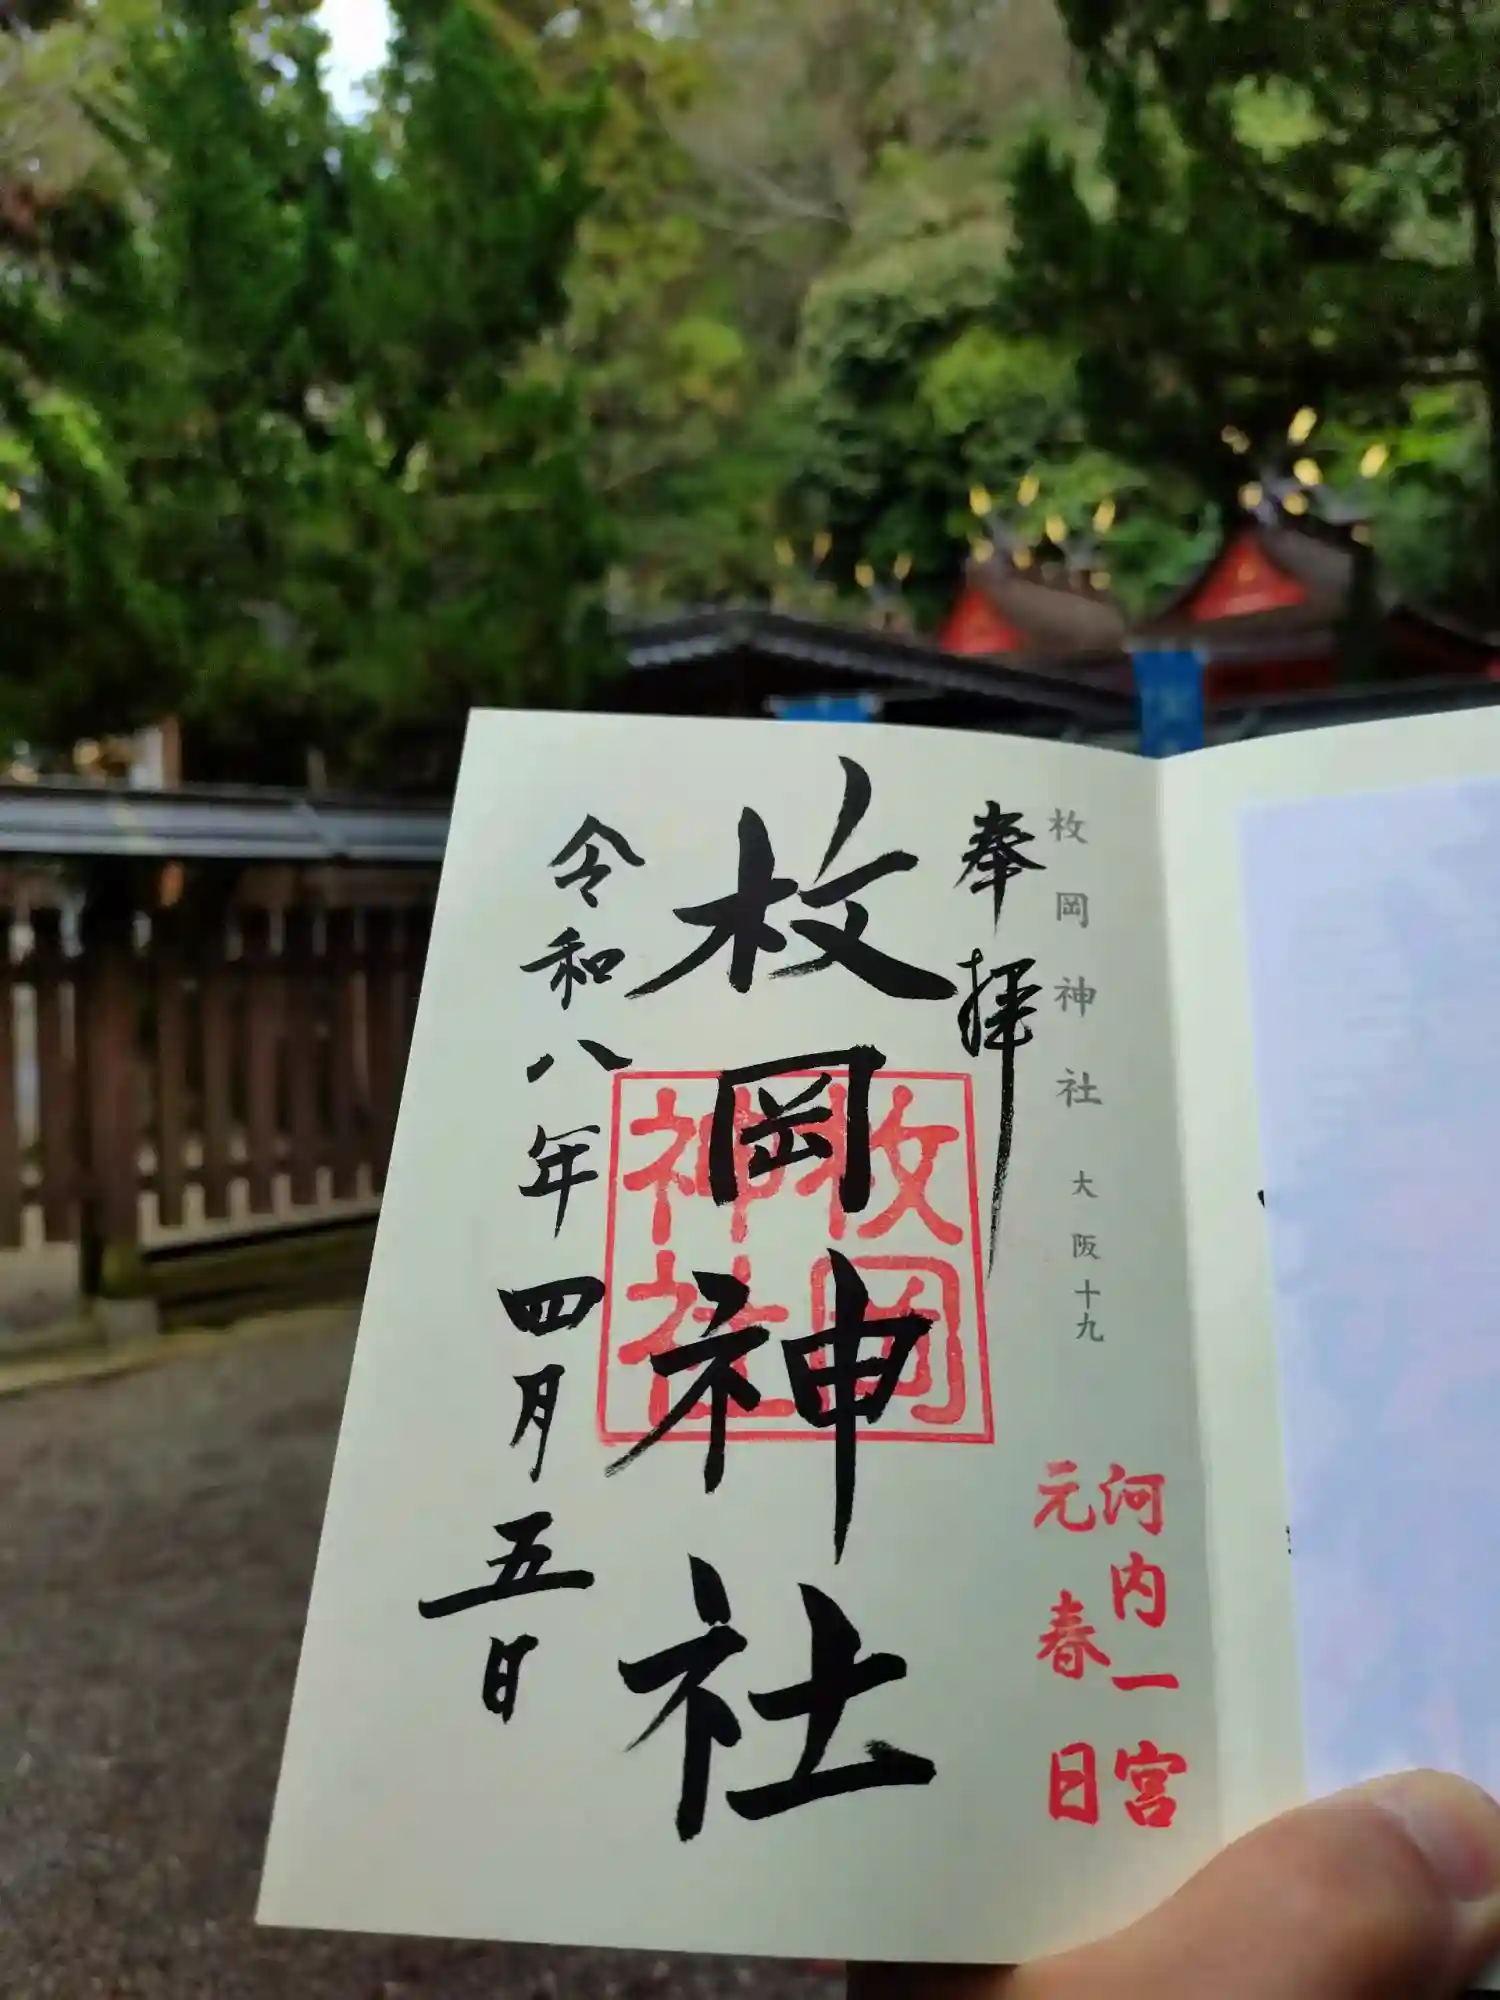 枚岡神社 大阪十九
奉拝
河内一宮
元春日
枚岡神社
枚岡
神社
令和八年四月五日